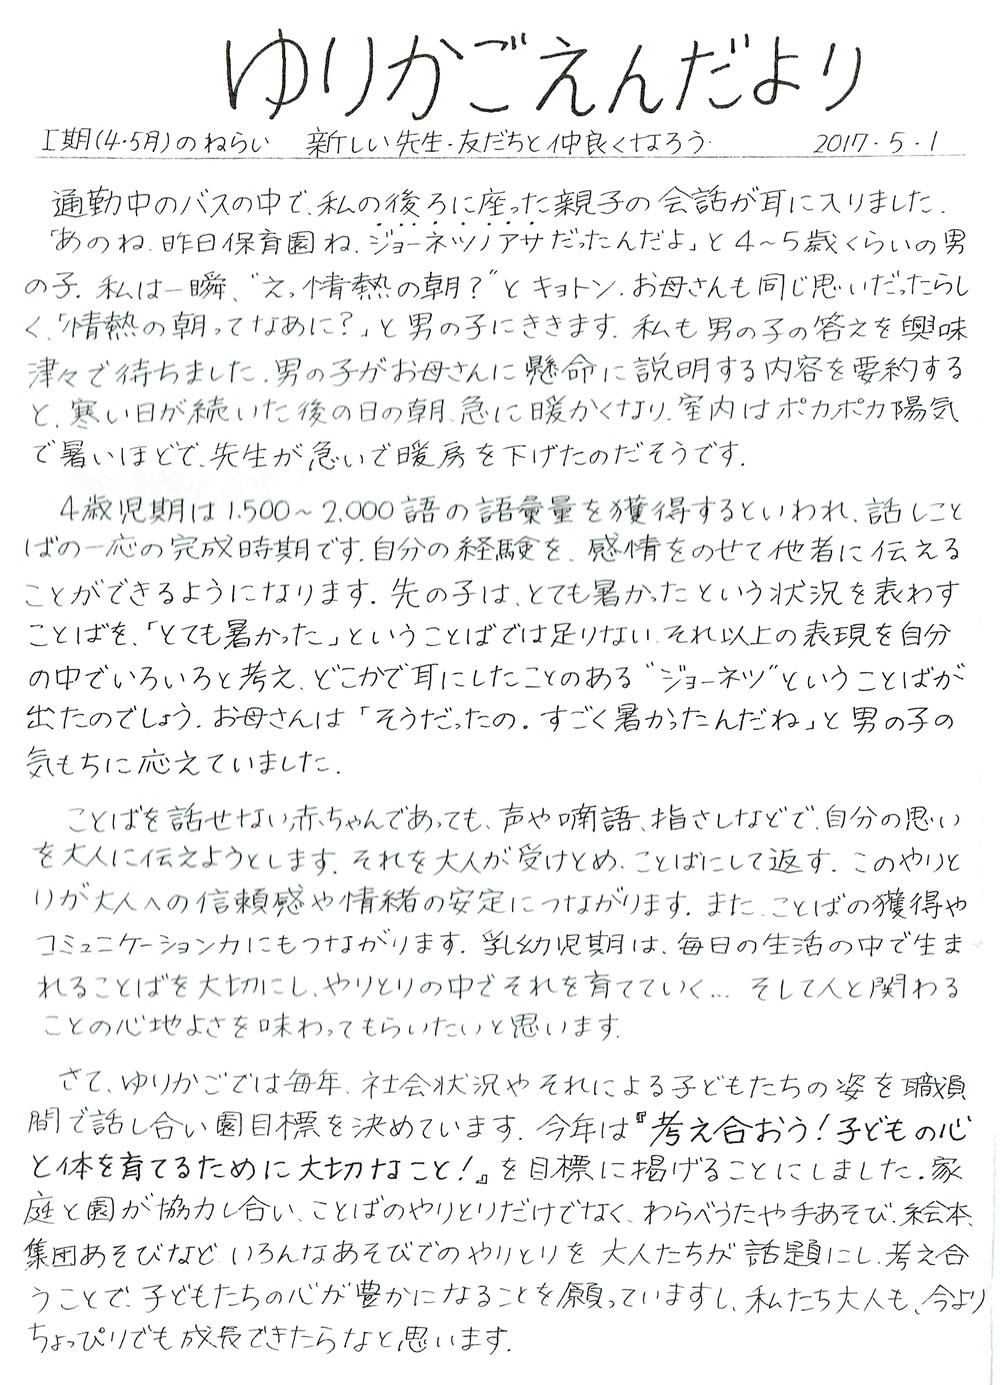 ゆりかごえんだより
I期(4・5月)のねらい 新しい先生・友だちと仲良くなろう 2017・5・1
通勤中のバスの中で、私の後ろに座った親子の会話が耳に入りました。
「あのね、昨日保育園ね、ジョーネツノアサだったんだよ」と4〜5歳くらいの男
の子。私は一瞬、"えっ情熱の朝?"とキョトン。お母さんも同じ思いだったらし
く、「情熱の朝ってなあに?」と男の子にききます。私も男の子の答えを興味
津々で待ちました。男の子がお母さんに懸命に説明する内容を要約する
と、寒い日が続いた後の日の朝、急に暖かくなり、室内はポカポカ陽気
で暑いほどで、先生が急いで暖房を下げたのだそうです。
4歳児期は1,500〜2,000語の語彙量を獲得するといわれ、話しこと
ばの一応の完成時期です。自分の経験を、感情をのせて他者に伝える
ことができるようになります。先の子は、とても暑かったという状況を表わす
ことばを、「とても暑かった」ということばでは足りない、それ以上の表現を自分
の中でいろいろと考え、どこかで耳にしたことのある"ジョーネツ"ということばが
出たのでしょう。お母さんは「そうだったの。すごく暑かったんだね」と男の子の
気もちに応えていました。
ことばを話せない赤ちゃんであっても、声や喃語、指さしなどで、自分の思い
を大人に伝えようとします。それを大人が受けとめ、ことばにして返す。このやりと
りが大人への信頼感や情緒の安定につながります。また、ことばの獲得や
コミュニケーション力にもつながります。乳幼児期は、毎日の生活の中で生ま
れることばを大切にし、やりとりの中でそれを育てていく… そして人と関わる
ことの心地よさを味わってもらいたいと思います。
さて、ゆりかごでは毎年、社会状況やそれによる子どもたちの姿を職員
間で話し合い園目標を決めています。今年は『考え合おう!子どもの心
と体を育てるために大切なこと!』を目標に掲げることにしました。家
庭と園が協力し合い、ことばのやりとりだけでなく、わらべうたや手あそび、絵本、
集団あそびなど、いろんなあそびでのやりとりを大人たちが話題にし、考え合
うことで、子どもたちの心が豊かになることを願っていますし、私たち大人も、今より
ちょっぴりでも成長できたらなと思います。